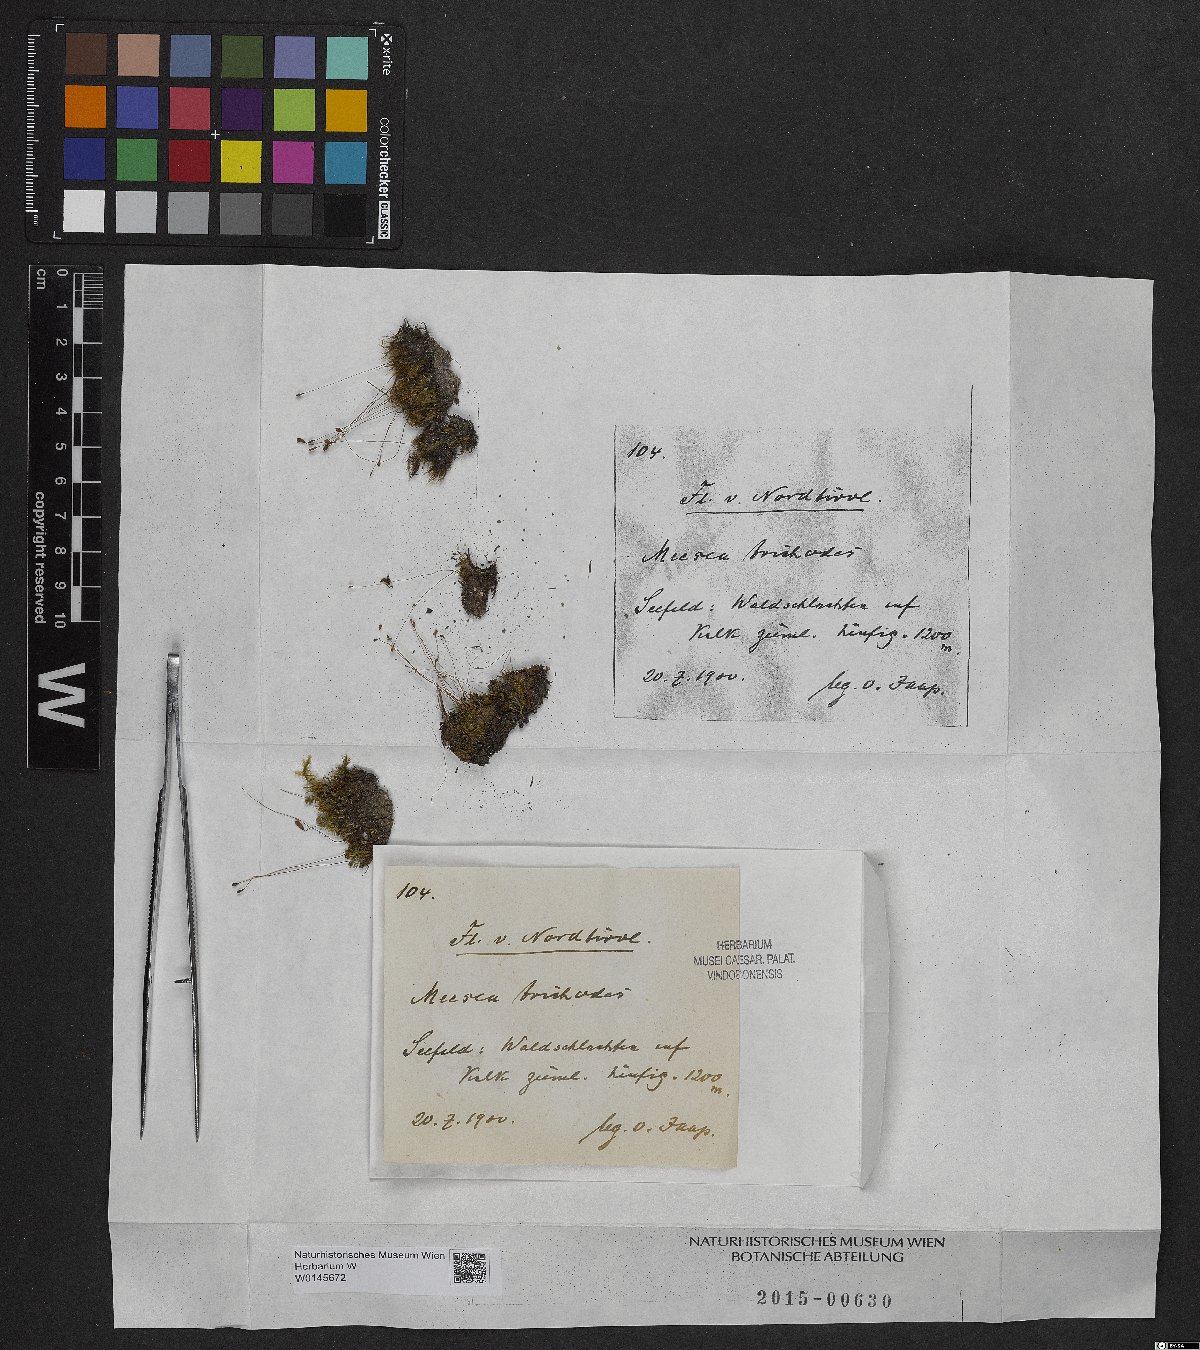 x-rite
colorchecker CLASSIC
cm
0 1 2 3 4 5 6 7 8 9 10
copyright reserved
W
104.
Fl. v. Nordtirol.
Meesea trichodes
Seefeld: Waldschluchten auf
Kalk zieml. häufig. 1200 m.
20. 7. 1900.
leg. O. Jaap.
104.
Fl. v. Nordtirol.
Meesea trichodes
Seefeld: Waldschluchten auf
Kalk zieml. häufig. 1200 m.
20. 7. 1900.
leg. O. Jaap.
HERBARIUM
MUSEI CAESAR. PALAT.
VINDOBONENSIS
Naturhistorisches Museum Wien
Herbarium W
W0145672
NATURHISTORISCHES MUSEUM WIEN
BOTANISCHE ABTEILUNG
2015-00630
BY-SA